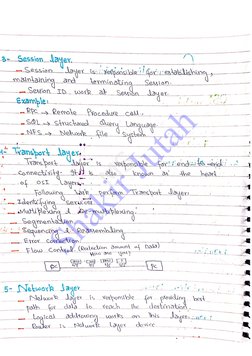 3- Session layer
- Session layer is responsible for establishing,
maintaining and terminating session.
- Session ID work at session layer.
Example:
- RPC → Remote Procedure call.
- SQL → Structured Query Language.
- NFS → Network file system
4- Transport layer
Transport layer is responsible for end to end
connectivity. It is also known as the heart
of OSI layer.
Following task perform Transport layer
- Identifying services
- Multiplexing & De-multiplexing
- Segmentation
- Sequencing & Reassembling
- Error correction
- Flow Control
PC
PC
5- Network layer
- Network layer is responsible for providing best
path for data to reach the destination.
- Logical addressing works on this layer.
- Router is Network layer device.